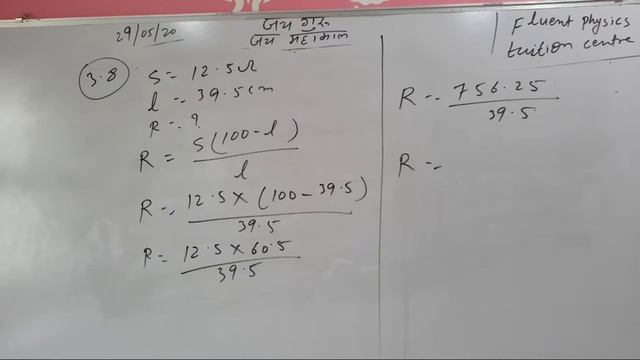 29/05/20
जय गुरु
जय महाकाल
Fluent physics
tuition centre
3.8
S = 12.5Ω
l = 39.5cm
R = ?
R = S(100-l)
l
R = 12.5 × (100 - 39.5)
39.5
R = 12.5 × 60.5
39.5
R = 756.25
39.5
R =